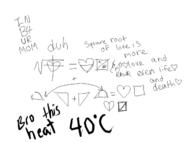 IN
B4
UR
MOM
duh
Square root
of love is
more
love and
even life
and
death
Bro this
heat 40°C